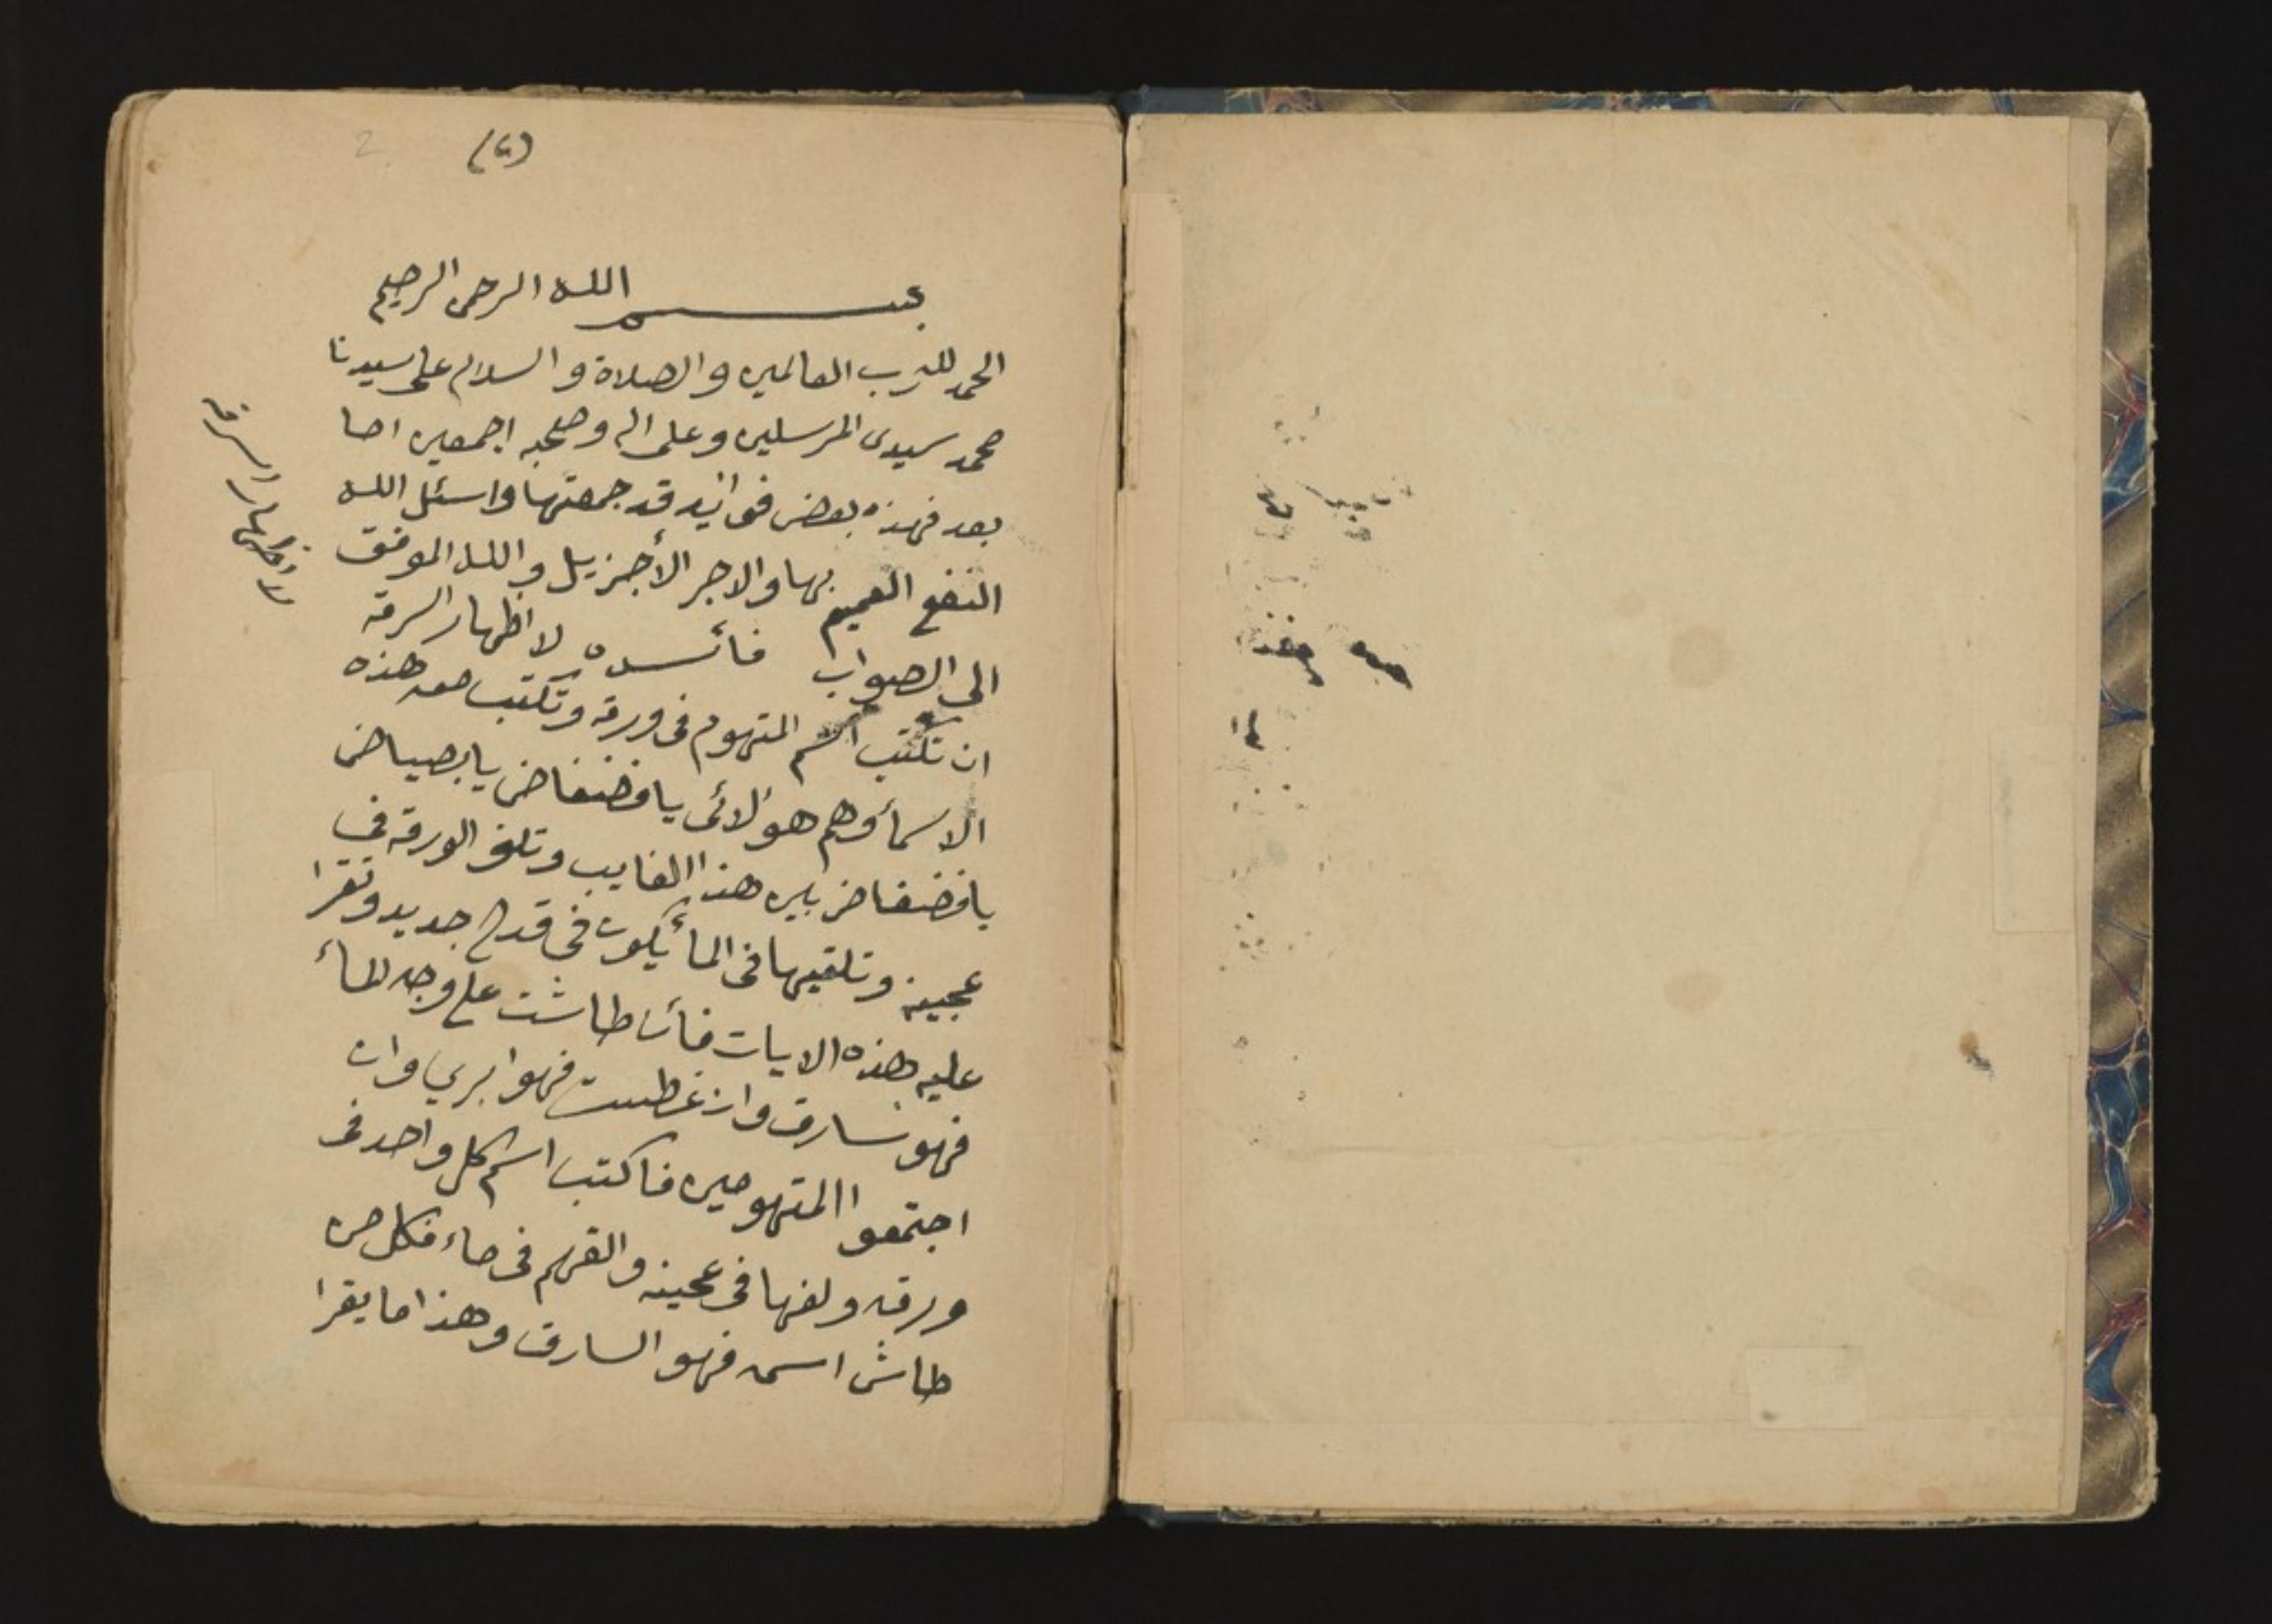 (٢)
2
بسم الله الرحمن الرحيم
الحمد لله رب العالمين والصلاة والسلام على سيدنا
محمد سيدى المرسلين وعلى اله وصحبه اجمعين اما
بعد فهذه بعض فوائد قد جمعتها واسئل الله
النفع العميم بها والاجر الأجزيل والله الموفق
الى الصواب فأئده لاظهار السرقه
ان تكتب اسم المتهوم فى ورقه وتكتب معه هذه
الاسمأ وهم هؤلائى يا فضفاض يا بصياض
يا فضفاض بين هذا الغايب وتلف الورقه في
عجينه وتلقيها فى المأ يكون فى قدح جديد وتقرا
عليه هذه الايات فأن طاشت على وجه المأ
فهو سارق وان غطست فهوا بري وان
اجتمعوا المتهومين فاكتب اسم كل واحد فى
ورقه ولفها فى عجينه والقهم فى ماء فكل من
طاش اسمه فهو السارق وهذا ما يقرا
لاظهار السرقه